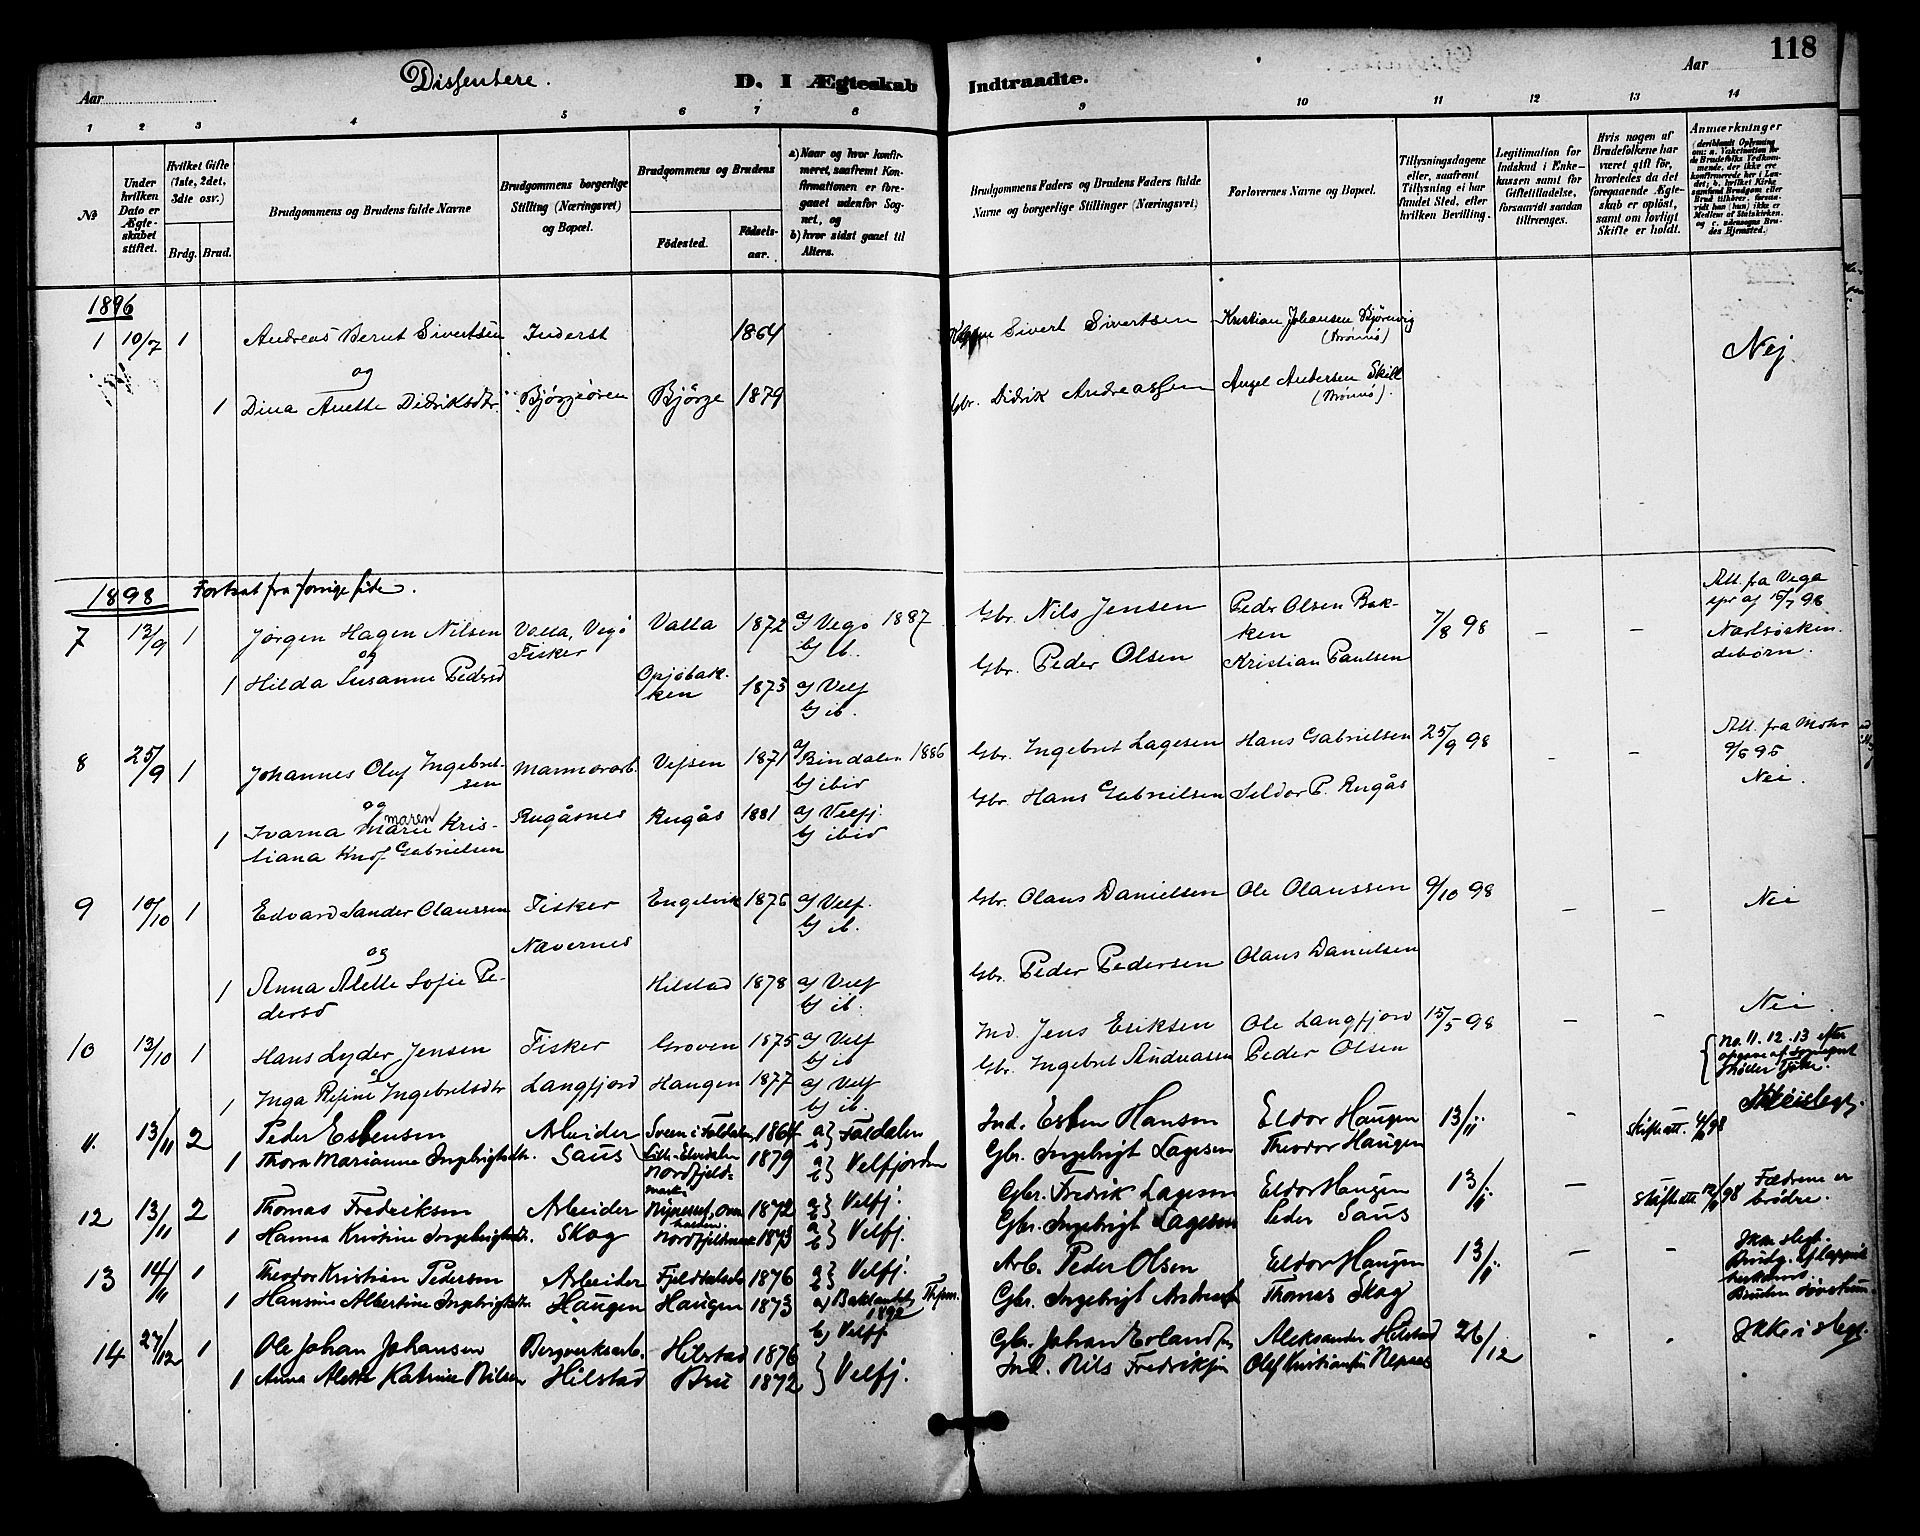 118
Dissentere.
D. I Ægteskab Indtraadte.
Aar
Aar
1 2 3 4 5 6 7 8 9 10 11 12 13 14
No
Under hvilken Dato er Ægteskabet stiftet.
Hvilket Gifte (1ste, 2det, 3die osv.)
Brdg. Brud.
Brudgommens og Brudens fulde Navne
Brudgommens borgerlige Stilling (Næringsvei) og Bopæl.
Brudgommens og Brudens
Födested.
Födselsaar.
a) Naar og hvor konfirmeret, saafremt Konfirmationen er foregaaet udenfor Sognet, og
b) hvor sidst gaaet til Alters.
Brudgommens Faders og Brudens Faders fulde Navne og borgerlige Stillinger (Næringsvei)
Forlovernes Navne og Bopæl.
Tillysningsdagene eller, saafremt Tillysning ei har fundet Sted, efter hvilken Bevilling.
Legitimation for Indskud i Enkekassen samt for Giftetilladelse, forsaavidt saadan tiltrænges.
Hvis nogen af Brudefolkene har været gift för, hvorledes da det foregaaende Ægteskab er oplöst, samt om lovligt Skifte er holdt.
Anmærkninger
(deriblandt Oplysning om: a. Vakcination for de Brudefolks Vedkommende, der ikke ere konfirmerede her i Landet; b. hvilket Kirkesamfund Brudgom eller Brud tilhörer, forsaavidt han (hun) ikke er Medlem af Statskirken, og c. udensogns Brudes Hjemsted.)
1896
1 10/7 1 Andreas Bernt Sivertsen Inderst 1864 Sivert Sivertsen Kristian Johansen
(Brønnø) Nej.
og
1 Dina Anette Didriksdtr. Bjørge 1879 Gbr. Didrik Andreassen Angel Andersen Skill
(Brønnø).
1898 Fortsat fra forrige side.
7 13/9 1 Jørgen Hagen Nilsen Valla, Vegø Fisker Valla 1872 a/ Vegø 1887 b/ ib. Gbr. Nils Jensen Peder Olsen Bakken 7/8 98 – – Att. fra Vega
og
1 Hilda Susanne Pedersd 1873 a/ Velf b/ ib. Gbr. Peder Olsen Kristian Paulsen
debørn.
8 25/9 1 Johannes Oluf Ingebretsen Marmorarb. Vefsen 1871 a/ Bindalen 1886 b/ ibid Gbr. Ingebret Lagesen Hans Gabrielsen 25/9 98 – – Att. fra
Nei.
og
1 Ivarna Maren Kristiana Knof Gabrielsen Rugåsnes Rugås 1881 a/ Velfj. b/ ibid Gbr. Hans Gabrielsen Seldor P. Rugås
9 10/10 1 Edvard Sander Olaussen Fisker Engelvik 1876 a/ Velf. b/ ib. Gbr. Olaus Danielsen Ole Olaussen 9/10 98 – – Nei
og Nævernes
1 Anna Alette Sofie Pedersd Hilstad 1878 a/ Velf b/ ib. Gbr. Peder Pedersen Olaus Danielsen
10 13/10 1 Hans Lyder Jensen Fisker Groven 1875 a/ Velf b/ ib Ind Jens Eriksen Ole Langfjord 15/5 98 – – Nei
1 Inga Regine Ingebretsdtr Langfjord Haugen 1877 a/ Velf b/ ib. Gbr. Ingebret Andreassen Peder Olsen
No. 11. 12. 13 efter
11. 13/11 2 Peder Esbensen Arbeider 1864 Ind. Esben Hansen Eldor Haugen 13/11 – Skifteatt.
1 Thora Marianne Ingebrigtsdtr. Saus 1879 a b } Velfjorden Gbr. Ingebrigt Lagesen Theodor Haugen
12 13/11 2 Thomas Fredriksen Arbeider 1872 a b } Velfj. Gbr. Fredrik Lagesen Eldor Haugen 13/11 – Skifteatt. Fædrene er brödre.
1 Hanna Kristine Ingebrigtsdtr. Skog Nordfjeldmark 1873 a b } Velfj. Gbr. Ingebrigt Lagesen Peder Saus
13 14/11 1 Theodor Kristian Pedersen Arbeider 1876 a b } Velfj. Arb. Peder Olsen Eldor Haugen 13/11 – – Ikke slegt.
1 Hansine Albertine Ingebrigtsdtr. Haugen Haugen 1873 a) 1892 b) Velfj. Gbr. Ingebrigt Thomas Skog
14 27/12 1 Ole Johan Johansen Bergverksarb. Hilstad 1876 } Velfj. Gbr. Johan Aleksander Hilstad 26/12 - - Ikke i slegt.
1 Anna Alette Katrine Nilsen Hilstad Bru 1872 Ind. Nils Fredriksen Olaf Kristiansen